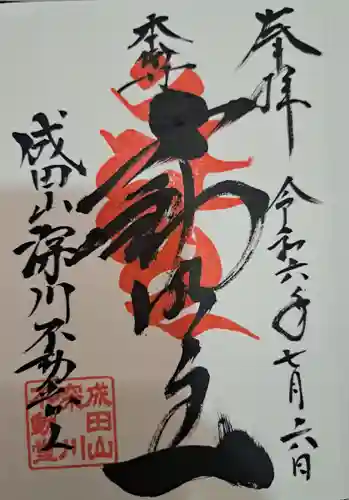 奉拝
令和六年七月六日
本尊
不動明王
成田山深川不動堂
成田山
深川
不動堂